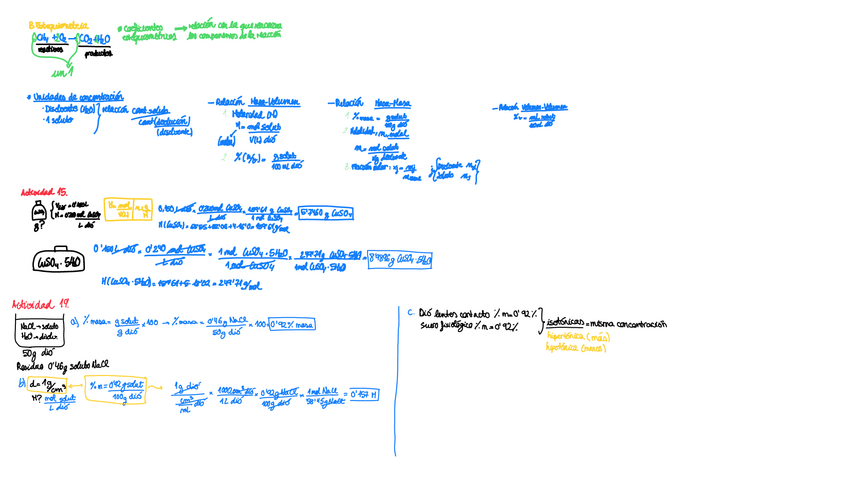 Estequiometría
CH₄ + O₂ → CO₂ + H₂O
reactivos productos
un 1
* Coeficientes estequiométricos → relación con la que reaccionan los componentes de la reacción
* Unidades de concentración
· Disolvente (H₂O)
· 1 soluto
relación cant soluto / cant (disolución) (disolvente)
— Relación Masa-Volumen
1. Molaridad (M)
M = mol solut / V(L) dió
(molar)
2. % (m/v) = g solut / 100 mL dió
— Relación Masa-Masa
1. % masa = g solut / 100g dió
2. Molalidad: m, molal
m = mol solut / kg disolvente
3. Fracción molar:
— Relación Volumen-Volumen
% v = mL solut / 100 mL dió
Actividad 15.
M = mol CuSO₄ / L dió
g?
0'150 L dió × 0'240 mol CuSO₄ / L dió × 159'61 g CuSO₄ / 1 mol CuSO₄ = 5'7460 g CuSO₄
M(CuSO₄) = 63'55 + 32'06 + 4·16'0 = 159'61 g/mol
CuSO₄ · 5H₂O
0'150 L dió × 0'240 mol CuSO₄ / L dió × 1 mol CuSO₄ · 5H₂O / 1 mol CuSO₄ × 249'71 g CuSO₄ · 5H₂O / 1 mol CuSO₄ · 5H₂O = 8'9896 g CuSO₄ · 5H₂O
M(CuSO₄ · 5H₂O) = 159'61 + 5 · 18'02 = 249'71 g/mol
Actividad 19.
NaCl → soluto
H₂O → disolv
50g dió
Residuo 0'46g soluto NaCl
a) % masa = g solut / g dió × 100 → % masa = 0'46g NaCl / 50g dió × 100 = 0'92% masa
b) d = 1 g/cm³ ↔ % m = 0'92g solut / 100g dió
M? mol solut / L dió
1g dió / cm³ dió mL × 1000cm³ dió / 1L dió × 0'92g NaCl / 100g dió × 1 mol NaCl / 58'45g NaCl = 0'157 M
C. Dió lentes contacto % m = 0'92%
suero fisiológico % m = 0'92%
isotónicas = misma concentración
hipertónica (más)
hipotónica (menos)